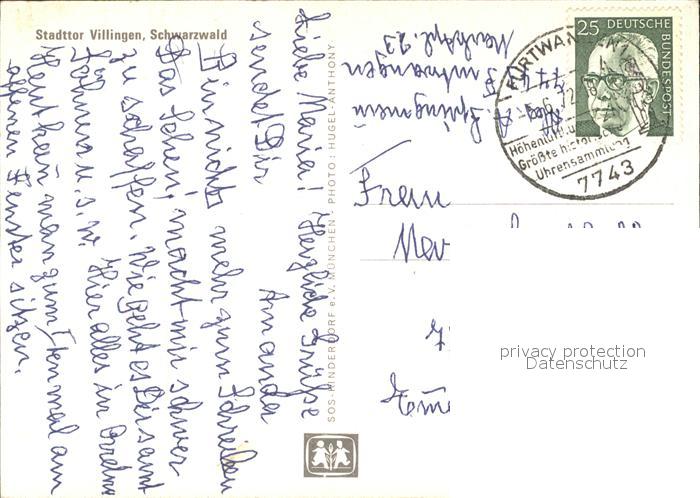 Stadttor Villingen, Schwarzwald
Liebe Maria! Herzliche Grüße
sendet Dir Amanda
Bin nichts mehr zum Schreiben
Das Sehen, macht mir schwer
zu schaffen. Wie geht es Dir samt
Söhnen u.s.w. Hier alles in Ordnu
Heut kann man zum I ten mal am
offenen Fenster sitzen.
SOS-KINDERDORF e.V. MÜNCHEN · PHOTO: HUGEL-ANTHONY
Abs. A.
774 Furtwangen
Marktpl. 23
Frau
25 DEUTSCHE BUNDESPOST
FURTWANGEN 1
Größte historische
Uhrensammlung
7743
privacy protection
Datenschutz